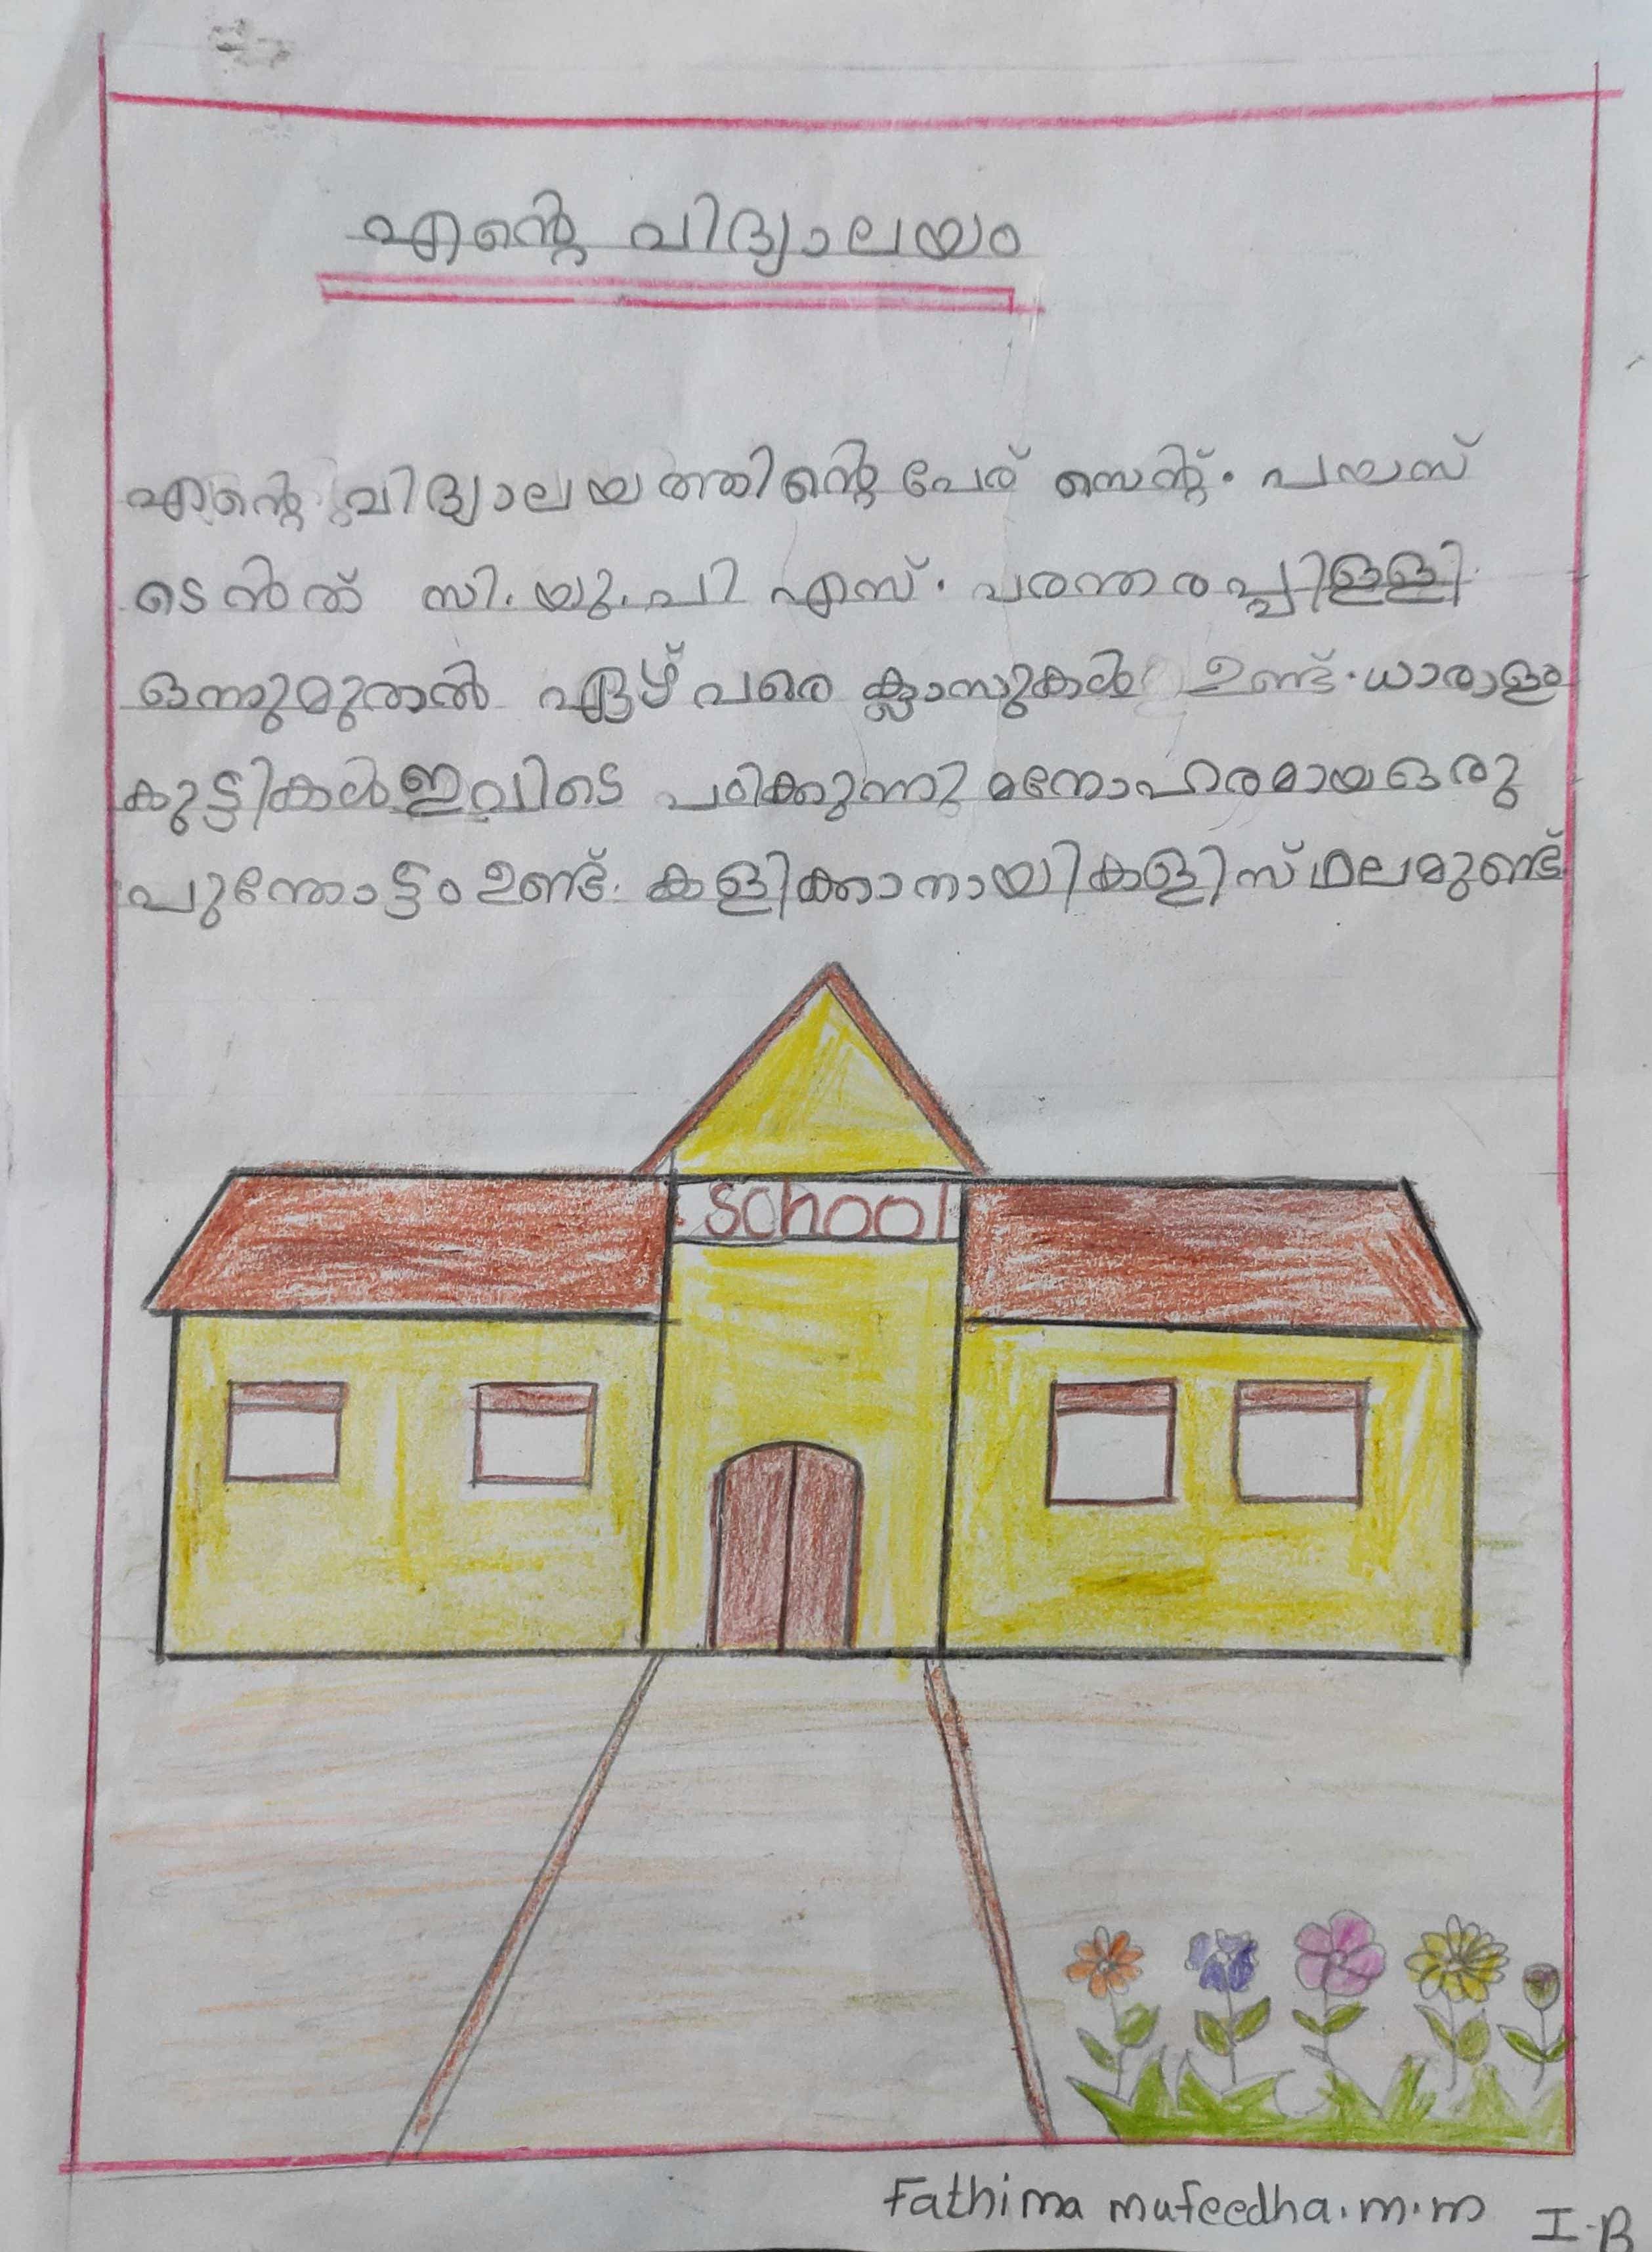 എന്റെ വിദ്യാലയം
എന്റെ വിദ്യാലയത്തിന്റെ പേര് സെന്റ്. പയസ്
ടെൻത് സി.യു.പി എസ്. പരന്തരപ്പിള്ളി
ഒന്നുമുതൽ ഏഴ് വരെ ക്ലാസുകൾ ഉണ്ട്. ധാരാളം
കുട്ടികൾ ഇവിടെ പഠിക്കുന്നു മനോഹരമായ ഒരു
പുന്തോട്ടം ഉണ്ട്. കളിക്കാനായി കളിസ്ഥലമുണ്ട്
School
Fathima mufeedha.m.m
I-B